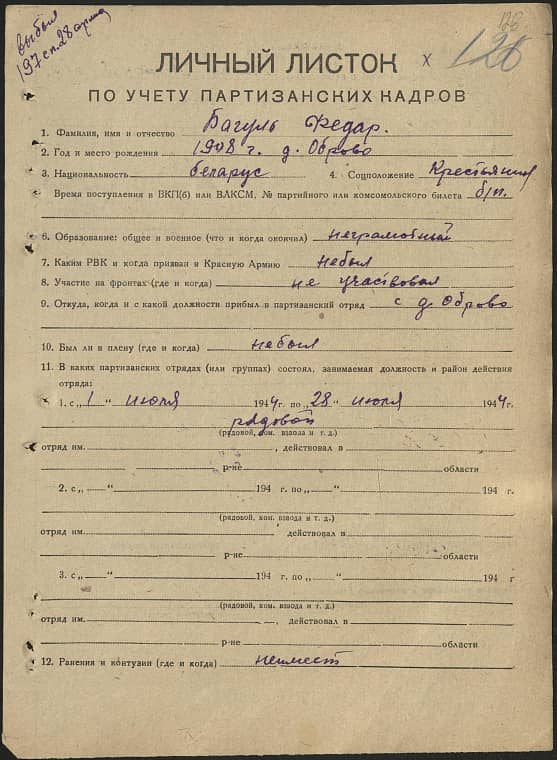 выбыл
197 сп. 28 арм
126
126
ЛИЧНЫЙ ЛИСТОК
ПО УЧЕТУ ПАРТИЗАНСКИХ КАДРОВ
1. Фамилия, имя и отчество Багуль Федар.
2. Год и место рождения 1908 г. д. Оброво
3. Национальность беларус 4. Соцположение Крестьянин
Время поступления в ВКП(б) или ВЛКСМ, № партийного или комсомольского билета б/п.
6. Образование: общее и военное (что и когда окончил) неграмотный
7. Каким РВК и когда призван и Красную Армию небыл
8. Участие на фронтах (где и когда) не участвовал
9. Откуда, когда и с какой должности прибыл в партизанский отряд с д. Оброво
10. Был ли в плену (где и когда) небыл
11. В каких партизанских отрядах (или группах) состоял, занимаемая должность и район действия
отряда:
1. с „1" июля 1944 г. по „28" июля 1944 г.
рядовой
(рядовой, ком. взвода и т. д.)
отряд им. , действовал в
р-не области
2. с „ " 194 г. по „ " 194 г.
(рядовой, ком. взвода и т. д.)
отряд им. действовал в
р-не области
3. с „ " 194 г. по „ " 194 г
(рядовой, ком. взвода и т. д.)
отряд им. , действовал в
р-не области
12. Ранения и контузии (где и когда) неимеет